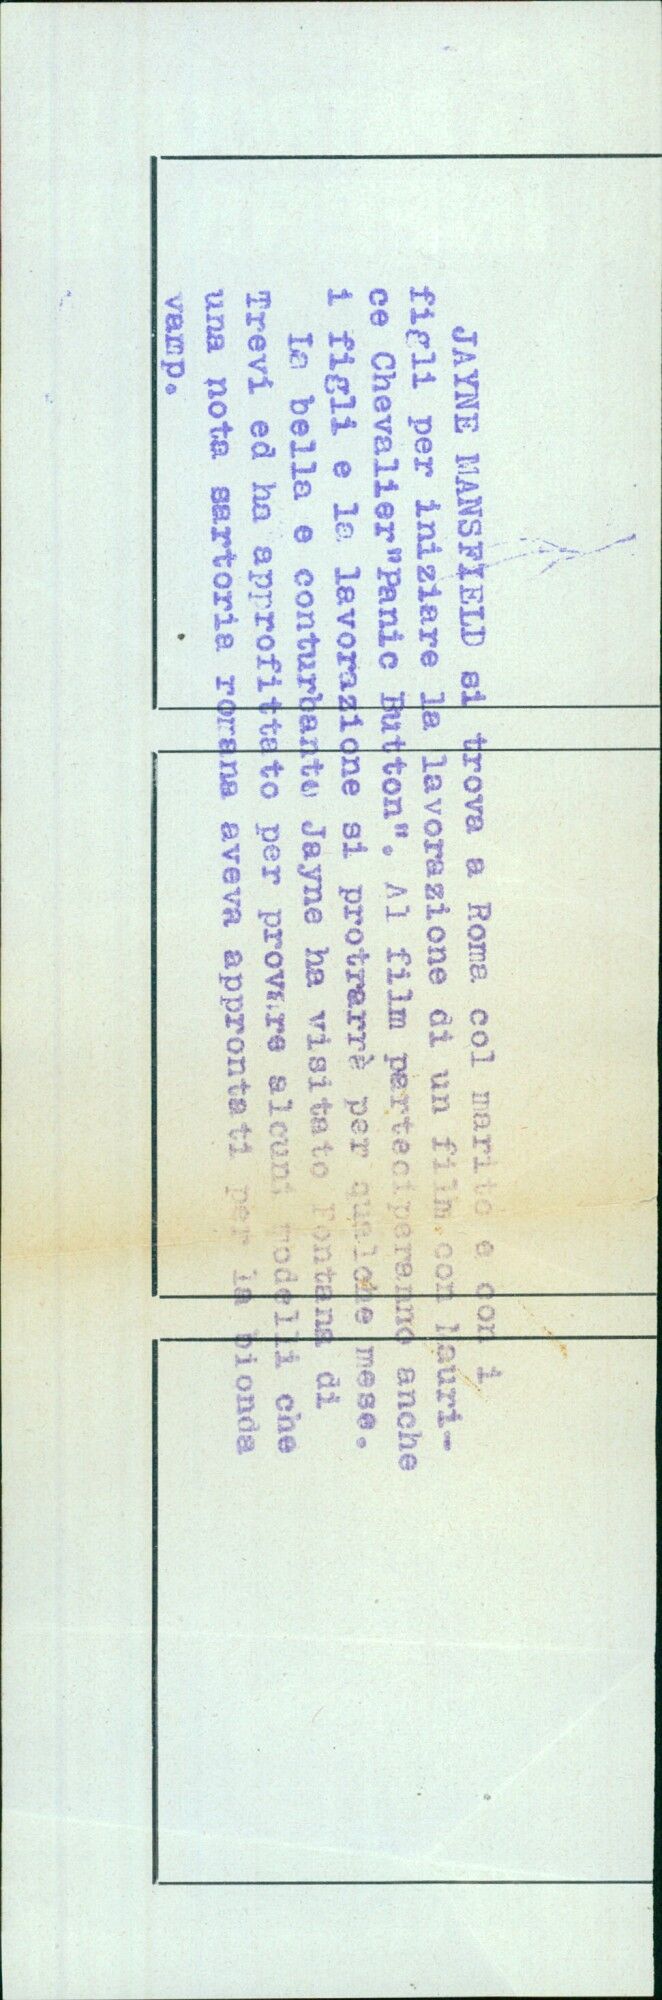 JAYNE MANSFIELD si trova a Roma col marito e con i
figli per iniziare la lavorazione di un film con Mauri-
ce Chevalier"Panic Button". Al film parteciperanno anche
i figli e la lavorazione si protrarrè per qualche mese.
La bella e conturbante Jayne ha visitato Fontana di
Trevi ed ha approfittato per provare alcuni modelli che
una nota sartoria romana aveva approntati per la bionda
vamp.